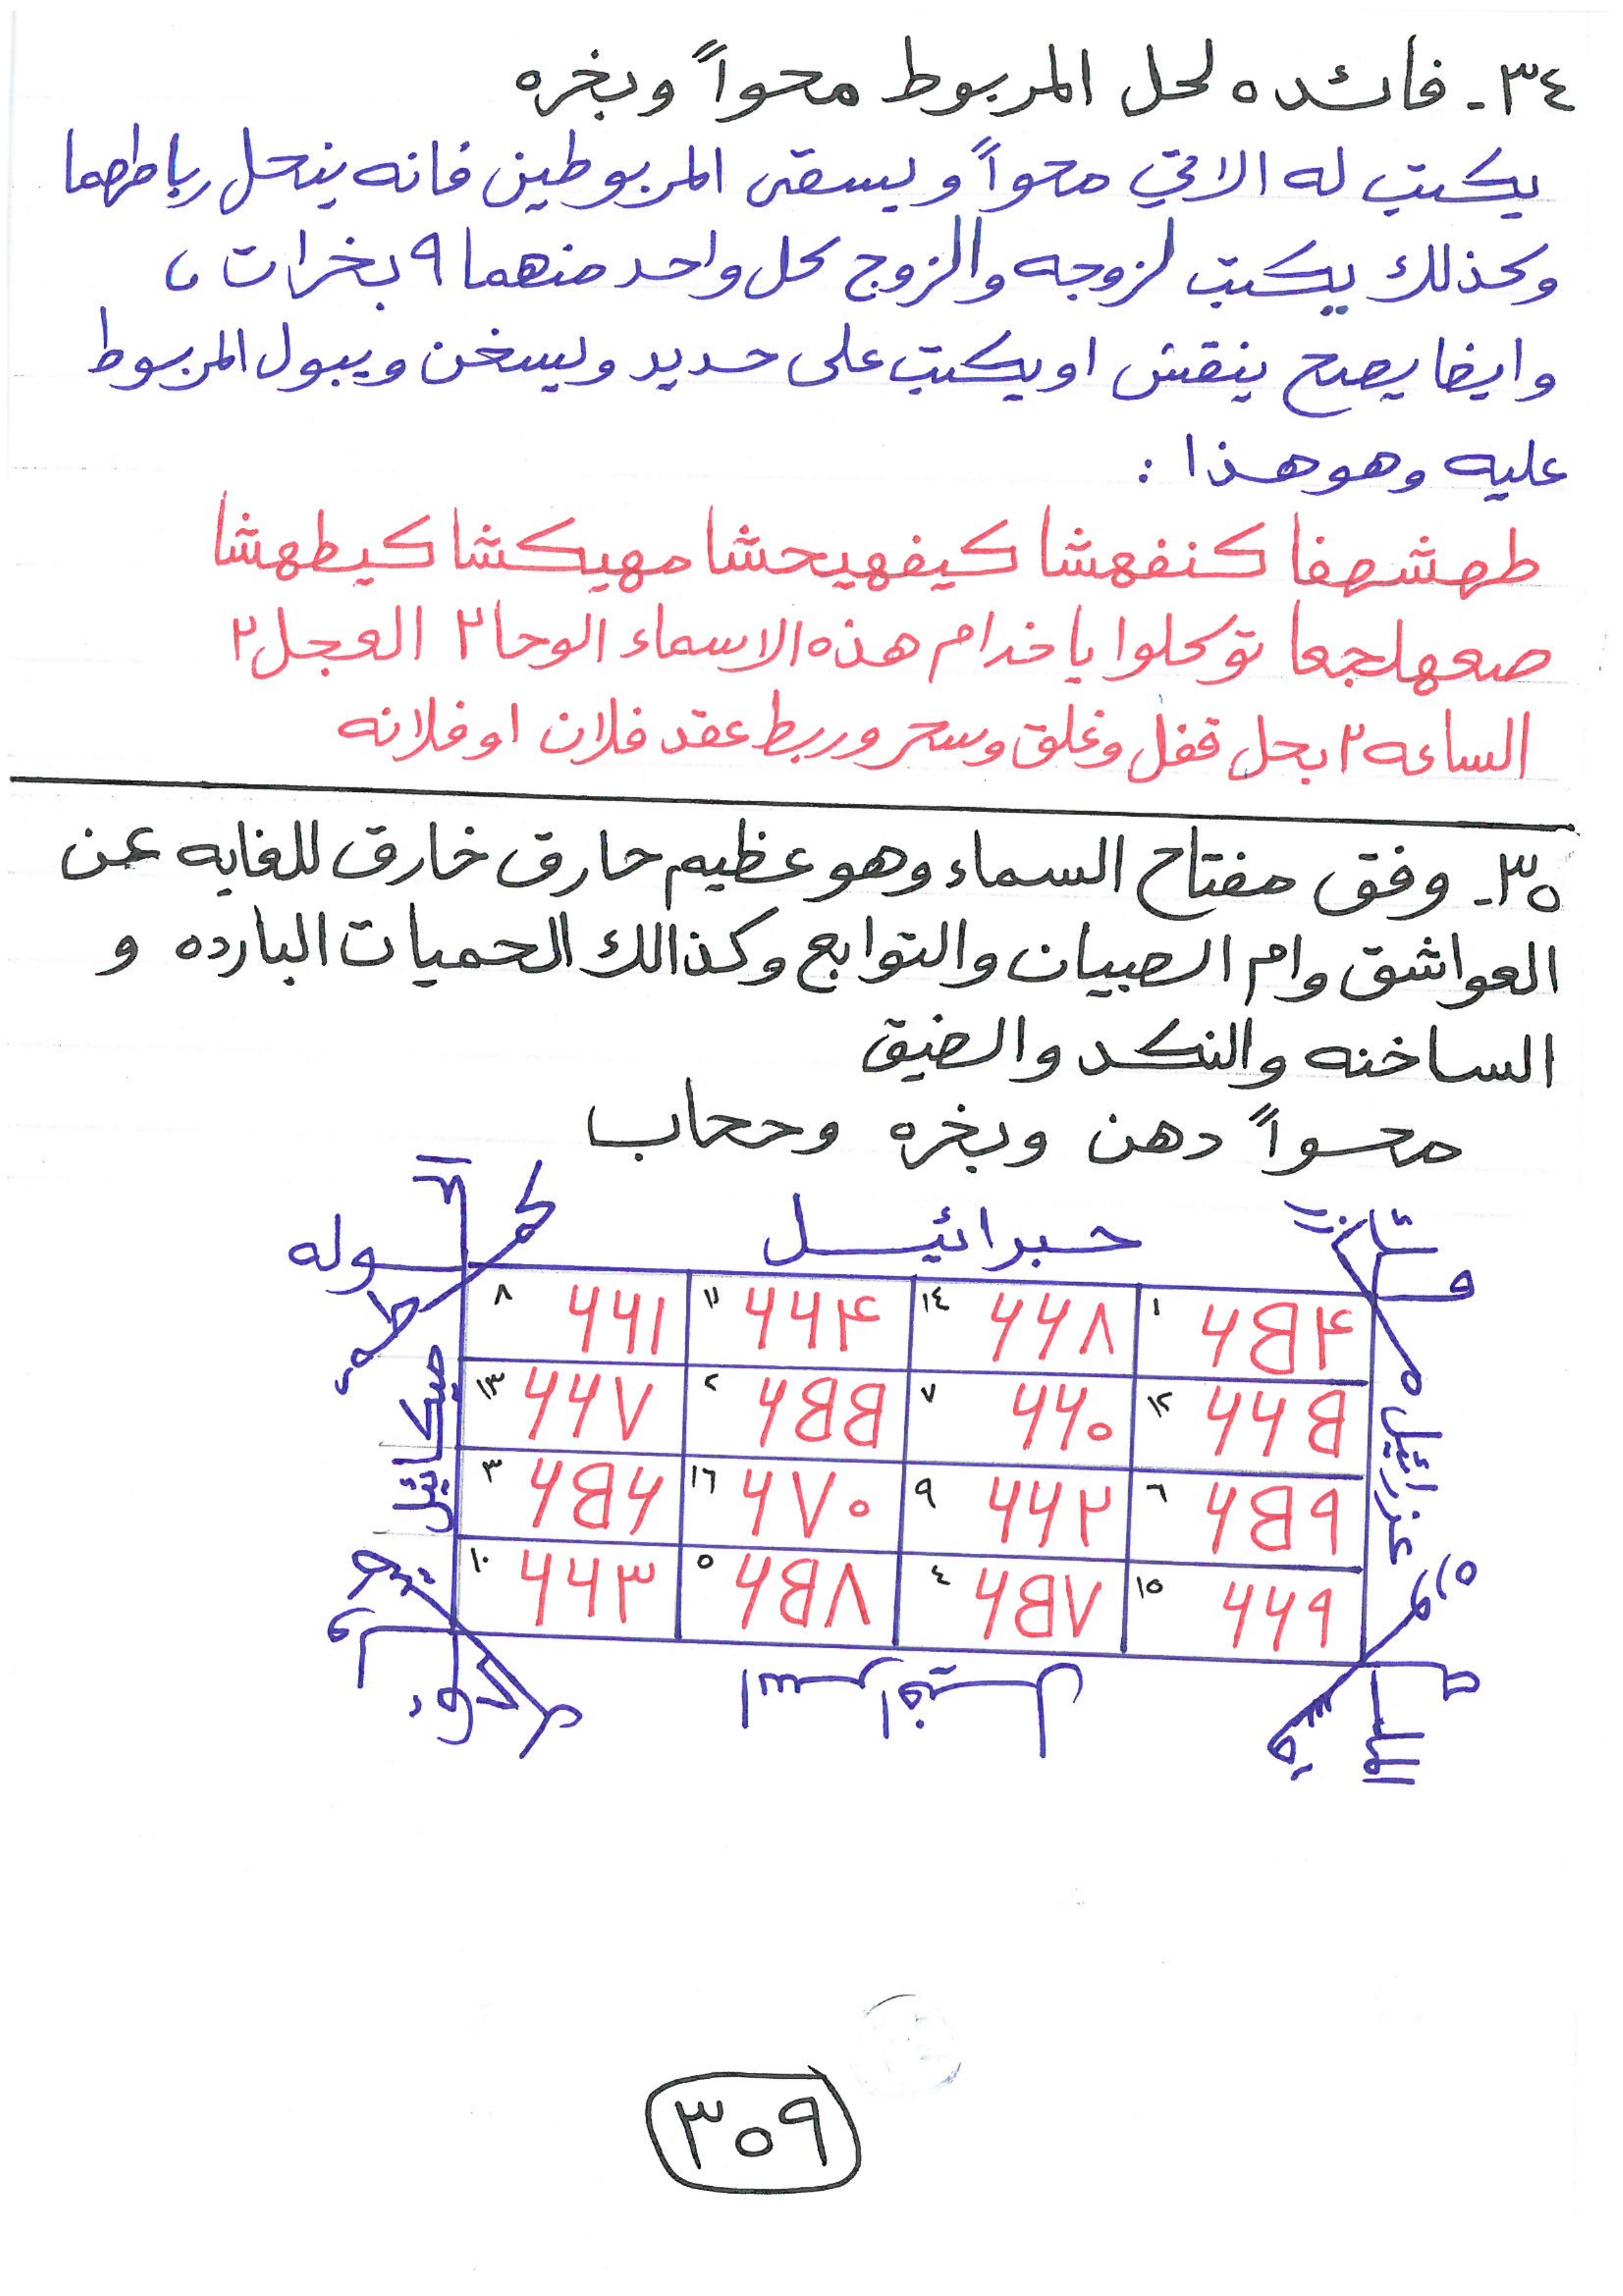 ٣٤- فائده لحل المربوط محواً وبخره
يكتب له الاتي محواً ويسقى المربوطين فانه ينحل رباطهما
وكذلك يكتب لزوجه والزوج لكل واحد منهما ٩ بخرات ،
وايضا يصح ينقش او يكتب على حديد ويسخن ويبول المربوط
عليه وهو هذا :
طهشهفا كنفهشا كيفهيحشا مهيكشا كيطهشا
صعهلجعا توكلوا يا خدام هذه الاسماء الوحا ٢ العجل ٢
الساعه ٢ بحل قفل وغلق وسحر وربط عقد فلان او فلانه
٣٥- وفق مفتاح السماء وهو عظيم حارق خارق للغايه عن
العواشق وام الصبيان والتوابع وكذالك الحميات البارده و
الساخنه والنكد والضيق
محواً دهن وبخره وحجاب
جبرائيل
وله
١ ٦٥٤ ١٤ ٦٦٨ ١١ ٦٦٤ ٨ ٦٦١
١٢ ٦٦٥ ٧ ٦٦٠ ٢ ٦٥٥ ١٣ ٦٦٧
٦ ٦٥٩ ٩ ٦٦٢ ١٦ ٦٧٠ ٣ ٦٥٦
١٥ ٦٦٩ ٤ ٦٥٧ ٥ ٦٥٨ ١٠ ٦٦٣
عزرائيل
ميكائيل
اسرافيل
الملك
٣٥٩